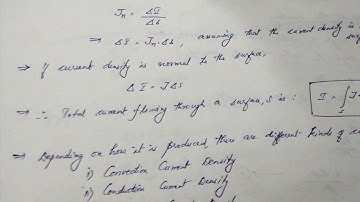 Jn = ΔI / ΔS
⇒ ΔI = Jn · ΔS , assuming that the current density is
⇒ If current density is normal to the surface,
ΔI = J ΔS
⇒ ∴ Total current flowing through a surface, S is : I = ∫ J
S
⇒ Depending on how it is produced, there are different kinds of
i) Convection Current Density
ii) Conduction Current Density